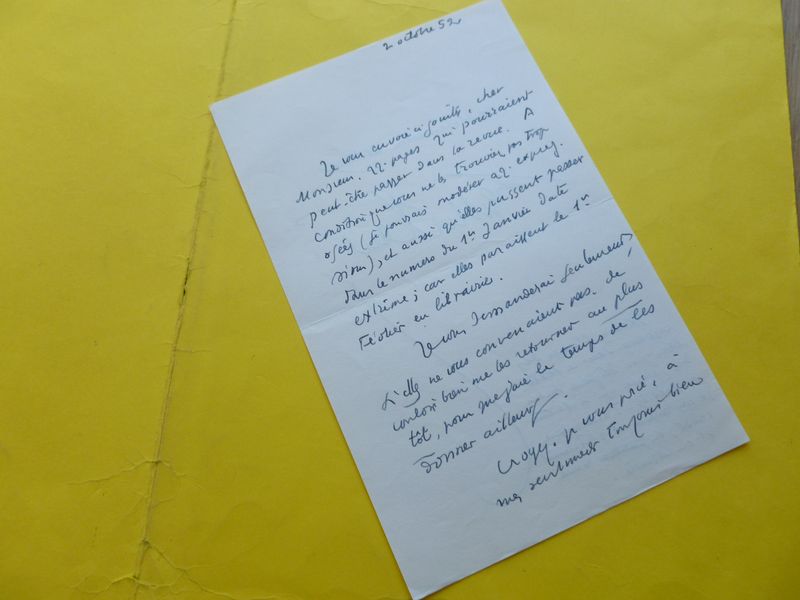 2 octobre 52
Je vous envoie ci-joints, cher
Monsieur, 22 pages qui pourraient
peut-être passer dans la revue. A
condition que vous ne les trouviez pas trop
osées (je pourrais modérer 2 expres
sions), et aussi qu'elles pussent passer
dans le numéro du 1er Janvier date
extrême ; car elles paraissent le 1er
Février en librairie.
Je vous demanderai seulement,
si elles ne vous convenaient pas, de
vouloir bien me les retourner au plus
tôt, pour que j'aie le temps de les
donner ailleurs.
Croyez, je vous prie, à
mes sentiments toujours bien